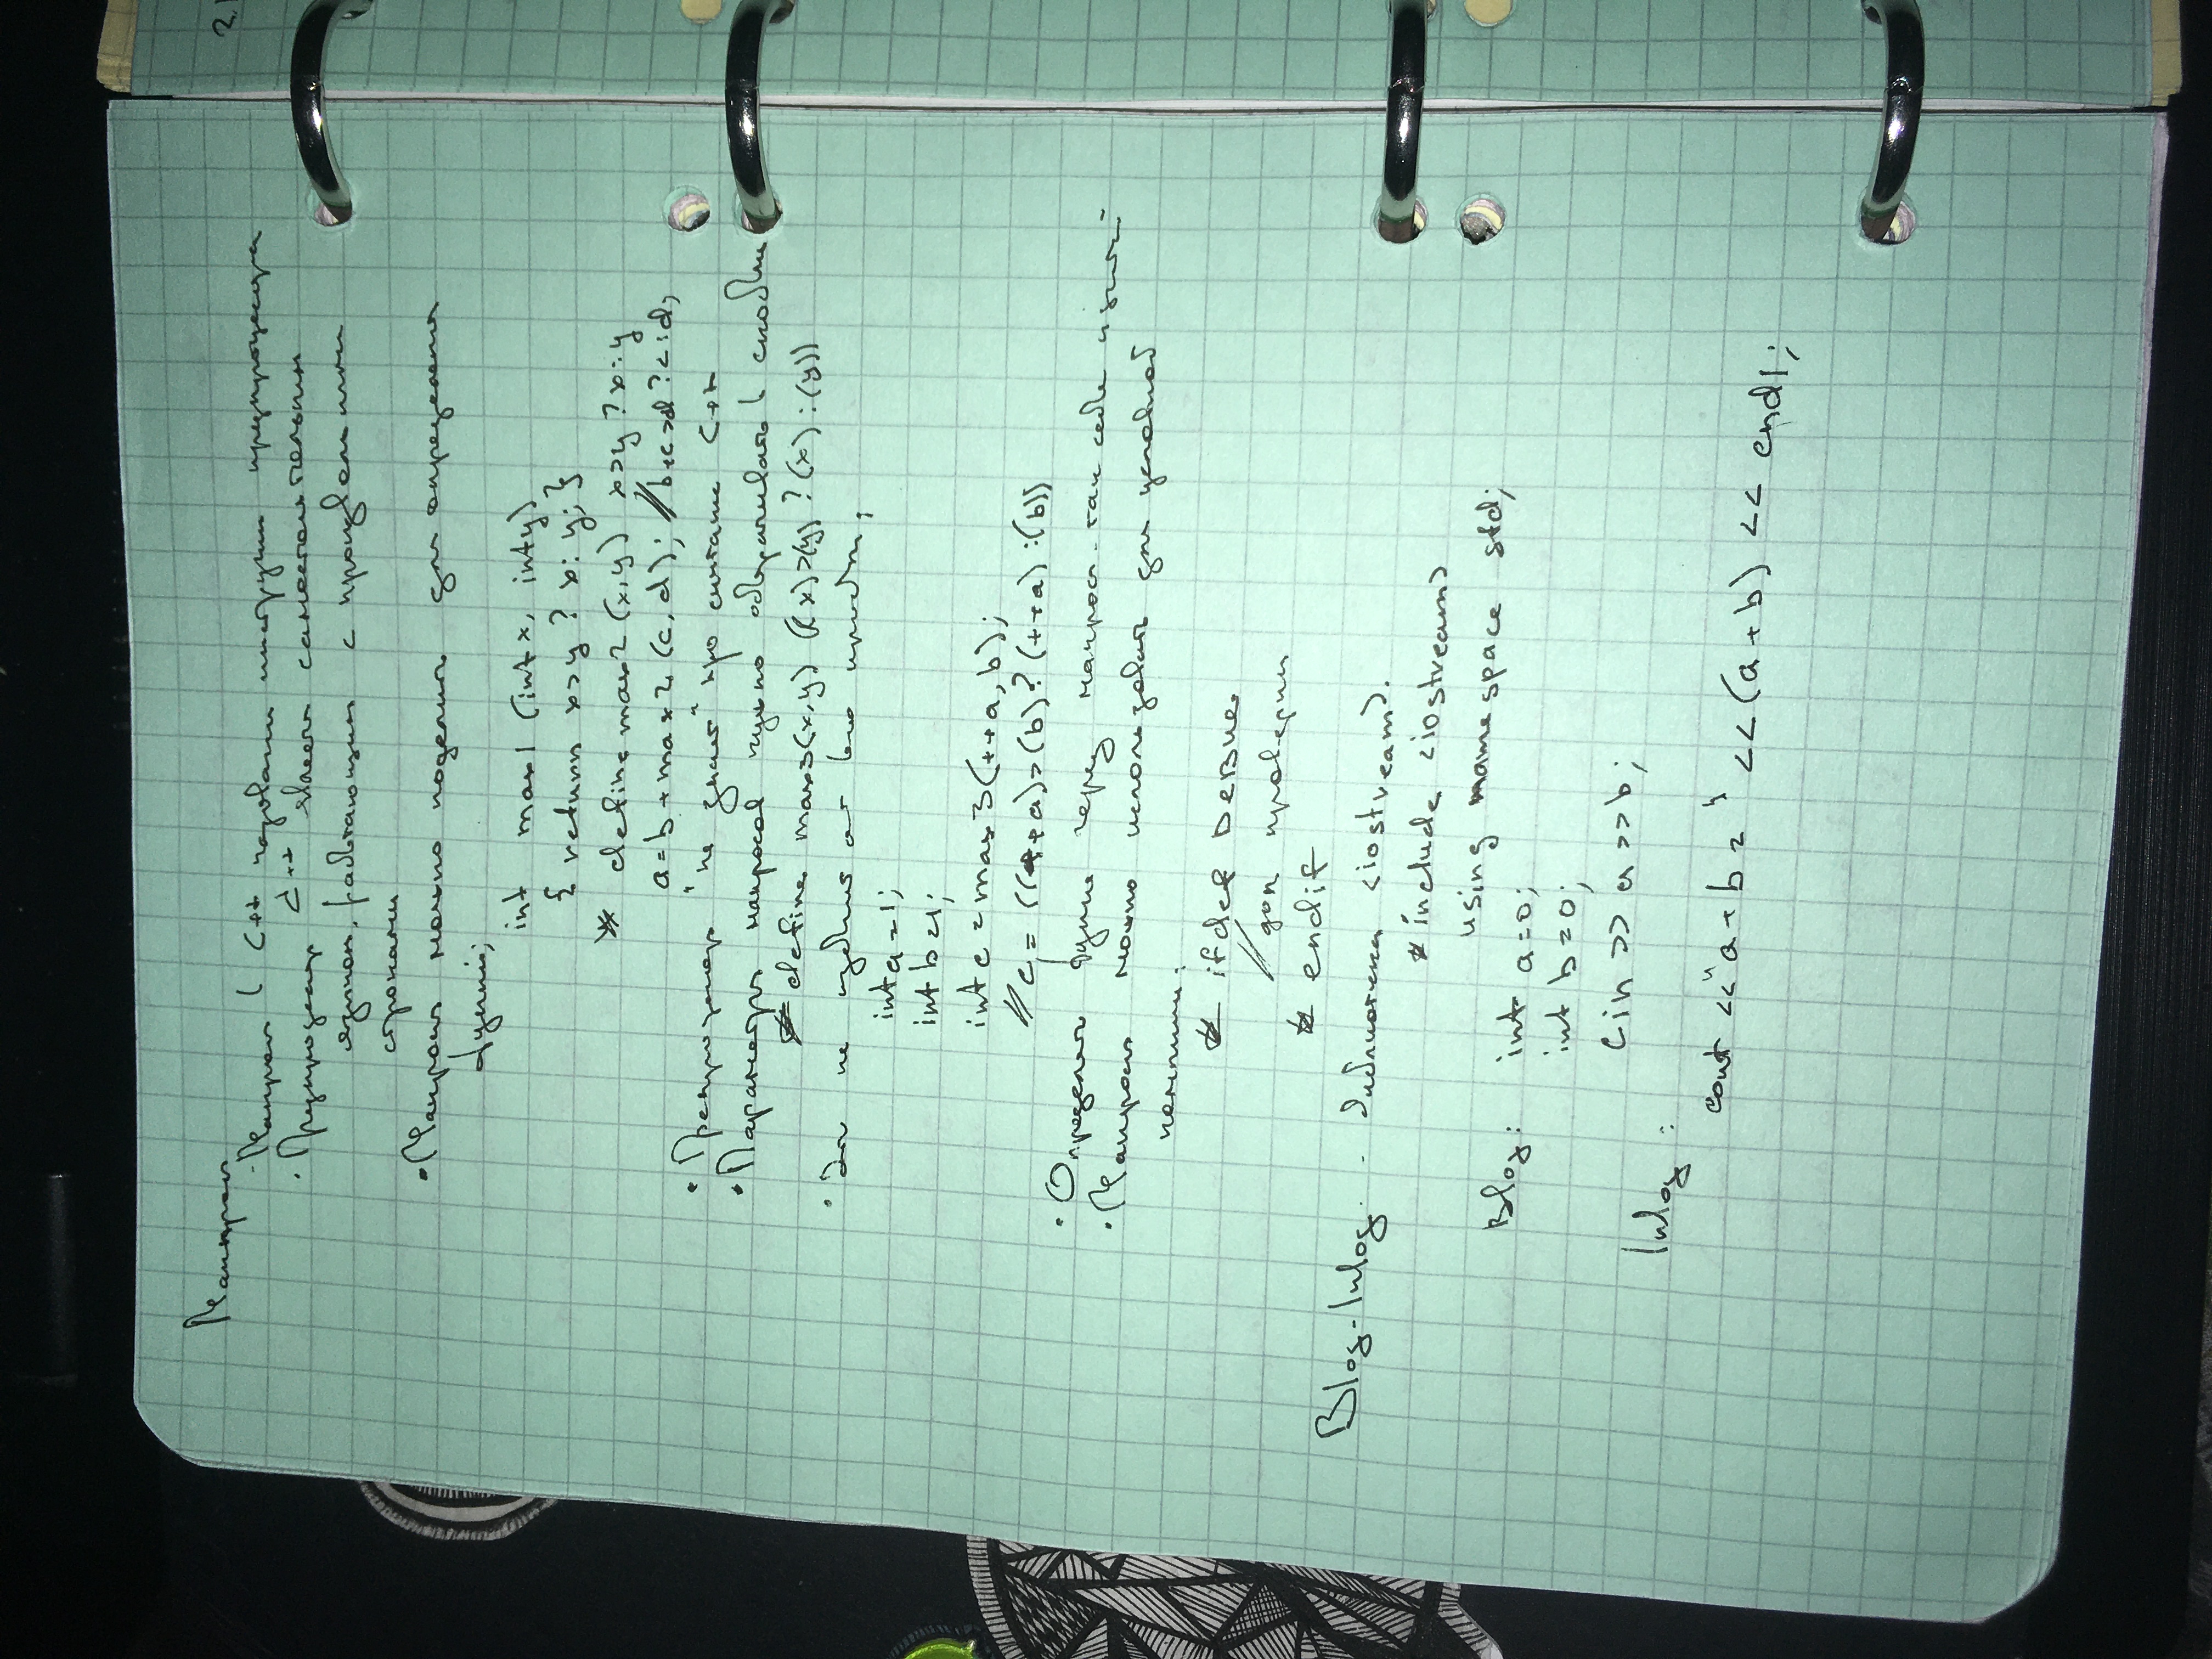 Макросы
· Макросы в C++ называют инструкции препроцессора
· Препроцессор C++ является самостоятельным
языком, работающим с произвольными
строками
· Макросы можно поделить для определения
функций;
int max1 (int x, int y)
{ return x>y ? x : y; }
# define max2 (x,y) x>y ? x : y
a = b + max2 (c, d); // b+c>d ? c : d;
· Препроцессор "не знает" про синтаксис C++
· Параметры макросов нужно оборачивать в скобки
# define max3(x,y) ((x)>(y) ? (x) : (y))
· Это не избавит от всех проблем;
int a = 1;
int b = 1;
int c = max3(++a, b);
// c = ((++a)>(b) ? (++a) : (b))
· Определять функции через макросы - так себе идея
· Макросы можно использовать для условной
компиляции:
# ifdef DEBUG
// доп проверки
# endif
Ввод-вывод - библиотека <iostream>.
# include <iostream>
using namespace std;
Ввод: int a=0;
int b=0;
cin >> a >> b;
Вывод :
cout << "a + b = " << (a + b) << endl;
2.